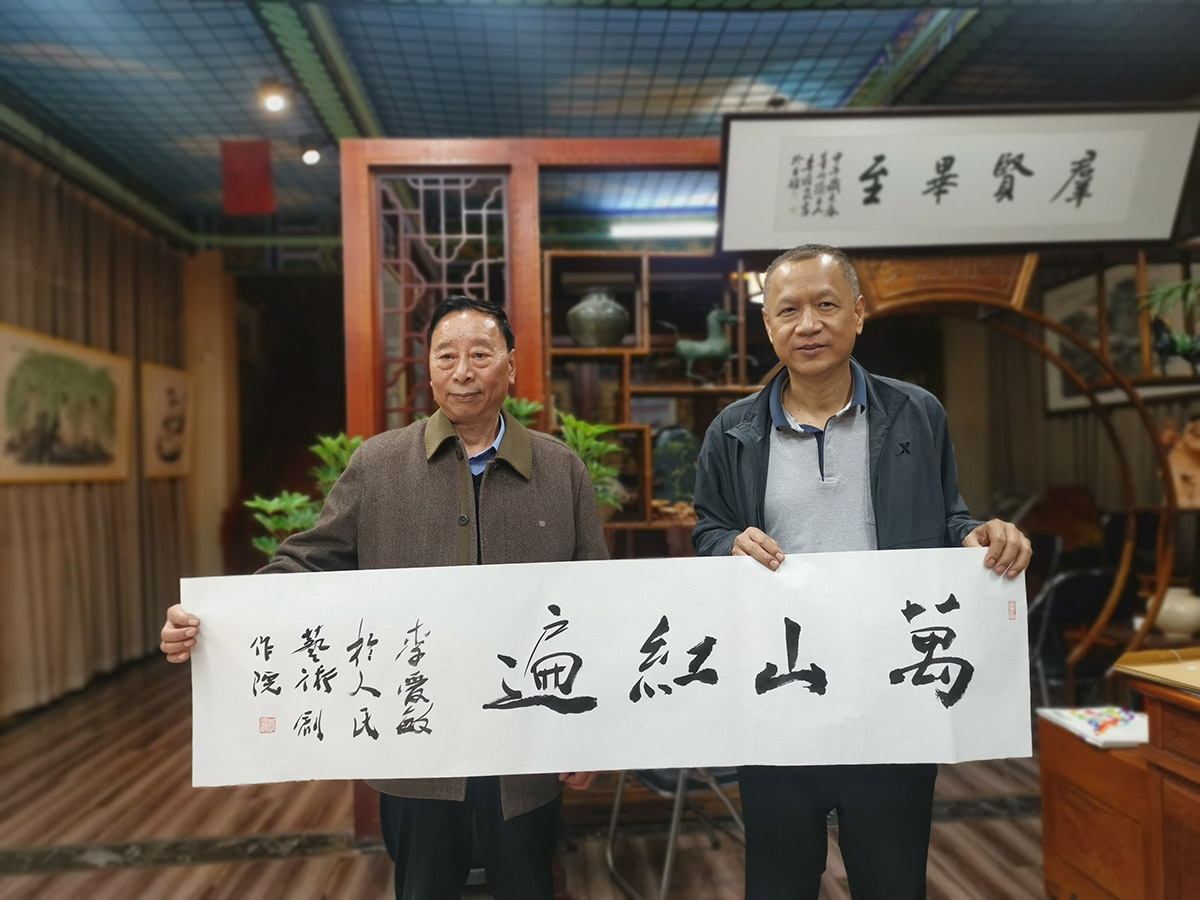 羣賢畢至
萬山紅遍
李愛敏
於人民
藝術創
作院